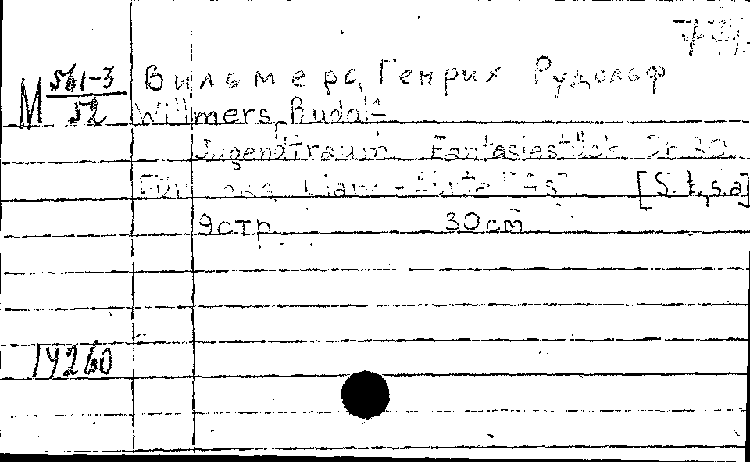 М 561-3
52
Вильмерс, Генрих Рудольф
Willmers, Rudolf
Jugendtraum Fantasiestück Op 30
Für das [S. l., s.a]
9стр. 30cm
14260